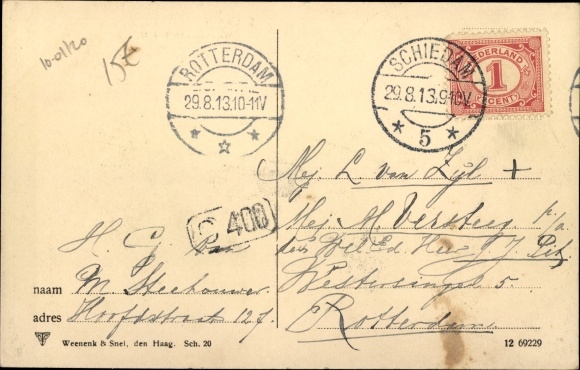 10-01/20
15€
ROTTERDAM
29.8.13.10-11V
SCHIEDAM
29.8.13.9-10V
5
NEDERLAND
1
CENT
Mej L. van Zijl +
Mej M Versteeg p/a
den Wel Ed. Heer J.
Westersingel 5.
Rotterdam
C 400
H. G. van
naam M. Steehouwer
adres Hoofdstraat 127.
Weenenk & Snel, den Haag. Sch. 20
12 69229